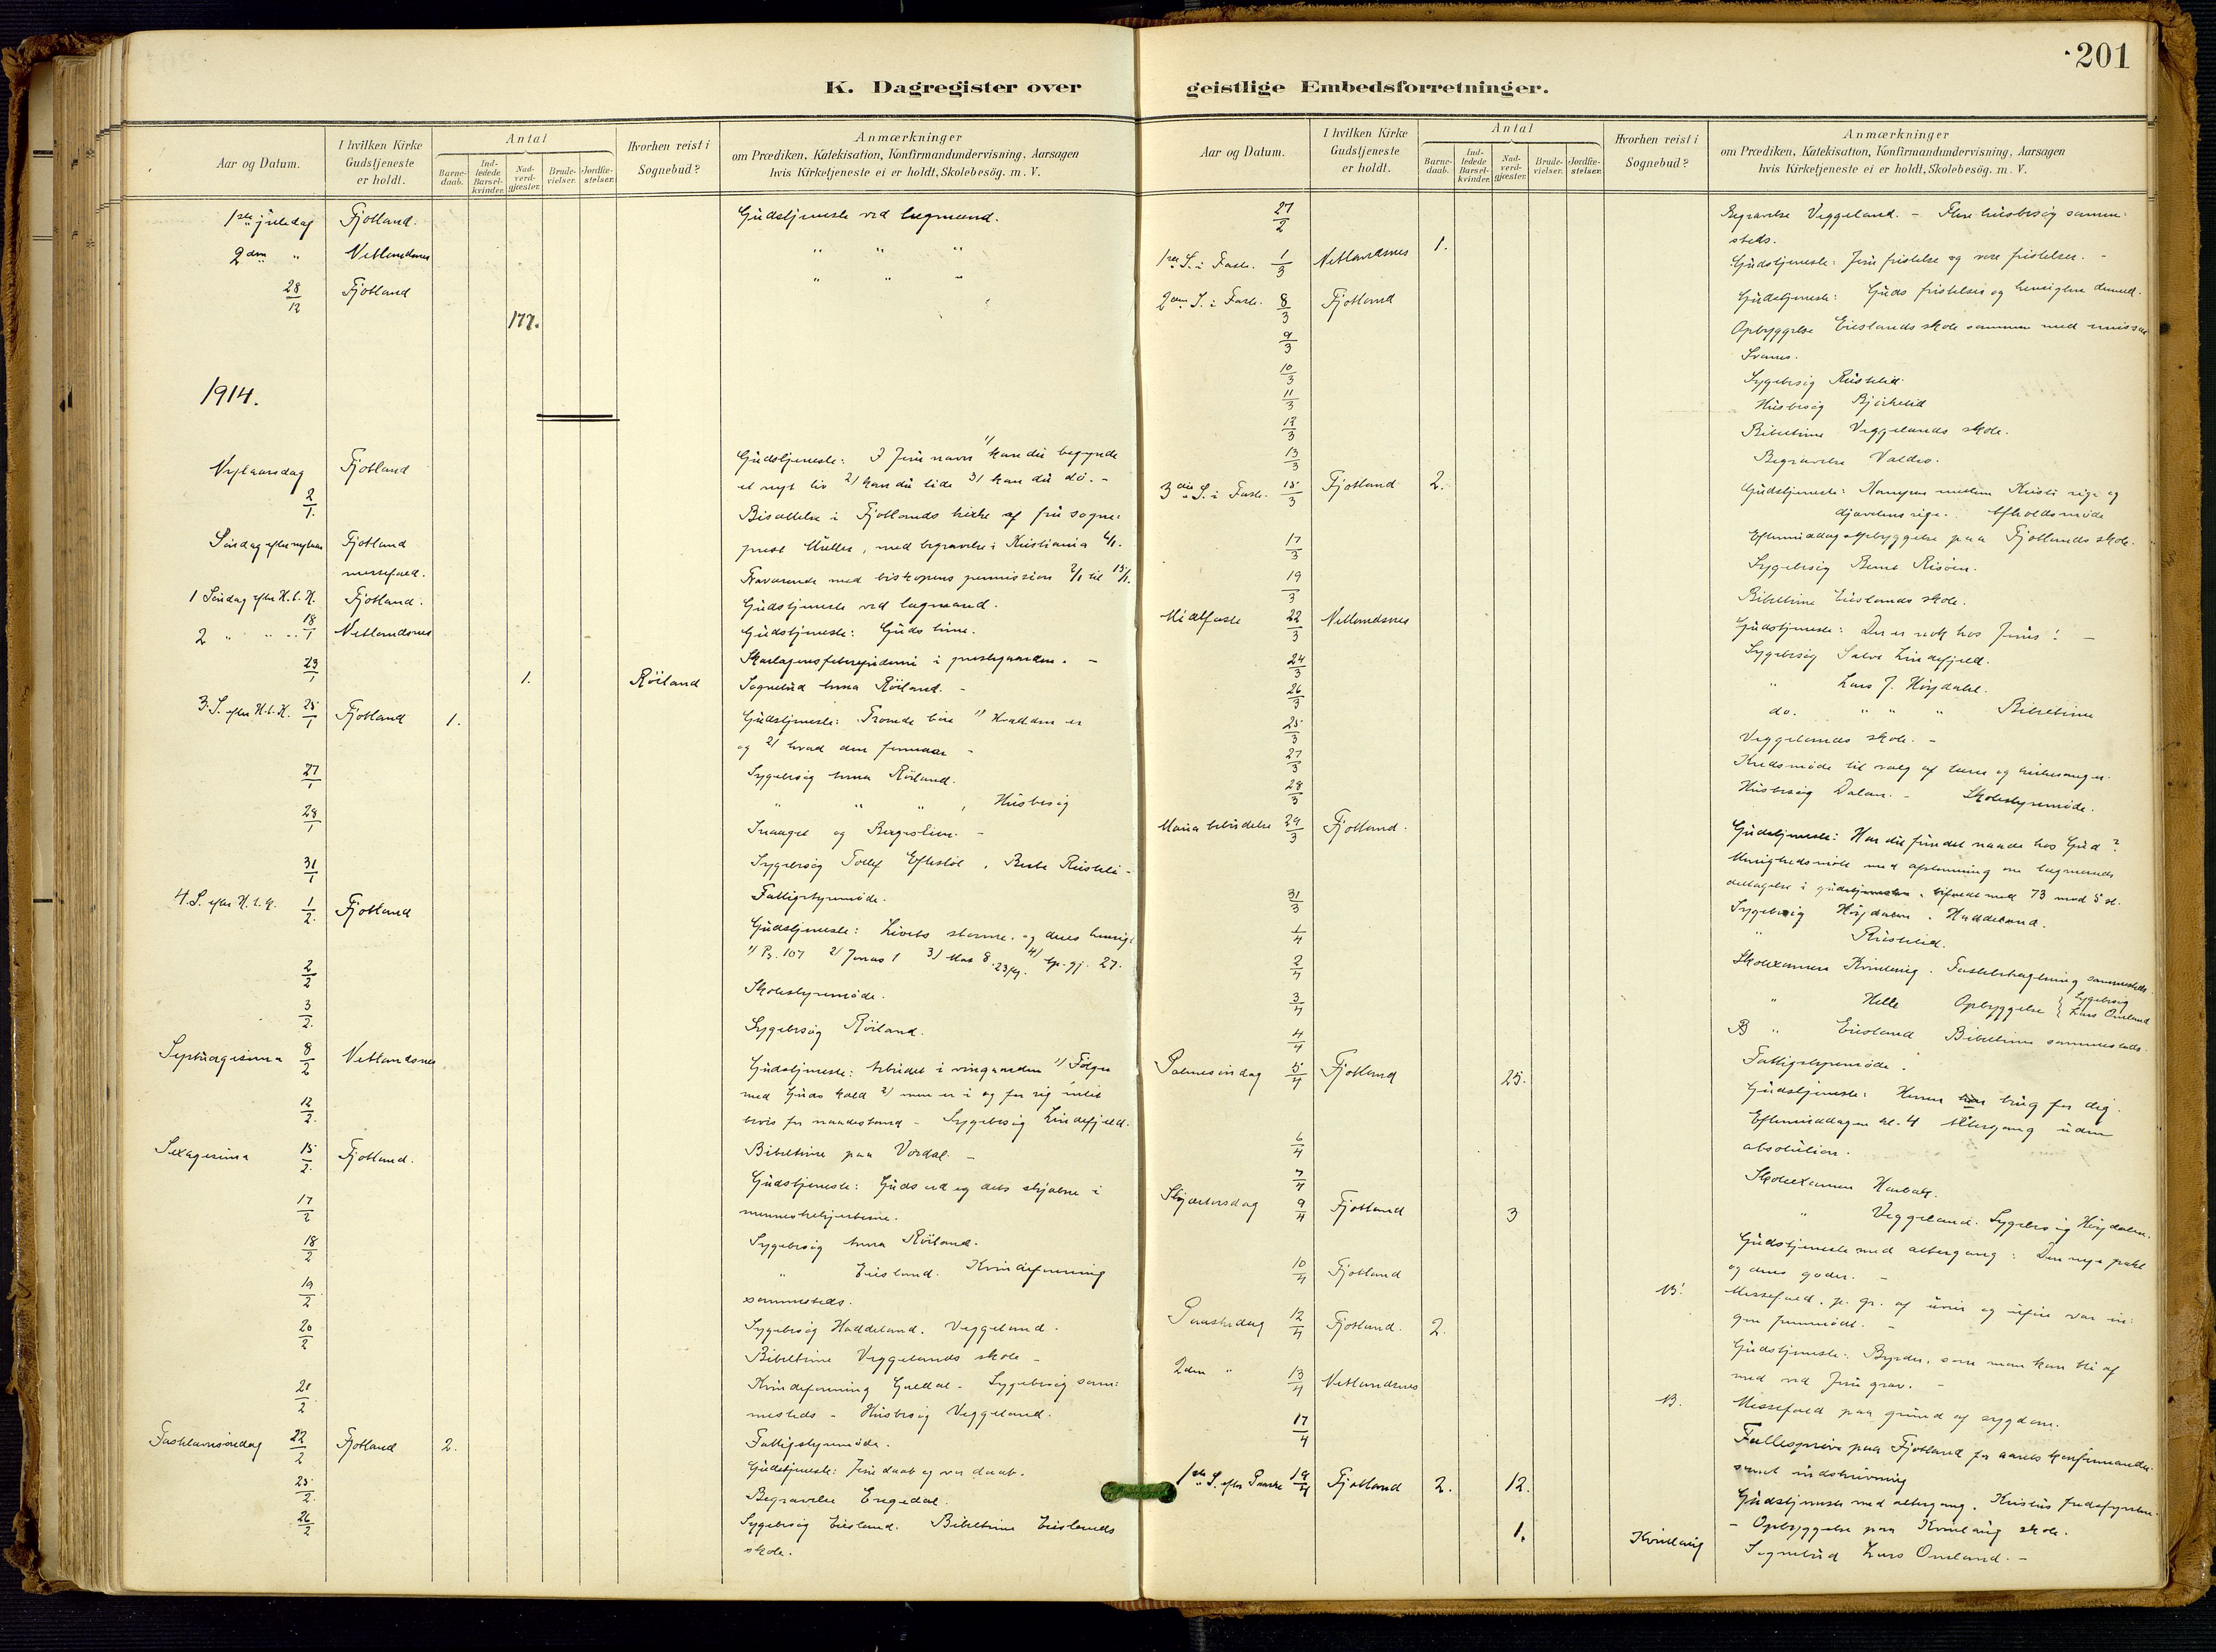 201
K. Dagregister over geistlige Embedsforretninger.
Aar og Datum.
I hvilken Kirke Gudstjeneste er holdt.
Antal
Barne-daab.
Ind-ledede Barsel-kvinder.
Nad-verd-gjæster.
Brude-vielser.
Jordfæ-stelser.
Hvorhen reist i Sognebud?
Anmærkninger
om Prædiken, Katekisation, Konfirmandundervisning, Aarsagen
hvis Kirketjeneste ei er holdt, Skolebesög. m. V.
1ste juledag Fjotland. Gudstjeneste ved lægmand.
2den " Netlandsnes " " "
28/12 Fjotland " " "
177.
1914.
Nytaarsdag Fjotland Gudstjeneste: I Jesu navn 1) kan du begynde
et nyt liv 2) kan du lide 3) kan du dö. -
2/1. Bisættelse i Fjotlands kirke af fru sogne-
prest Müller, med begravelse i Kristiania
Söndag efter nytaar Fjotland messefald. Fraværende med biskopens permission 2/1 til 15/1.
1 Söndag efter H.t.K. Fjotland. Gudstjeneste ved lægmand.
2 " " " 18/1 Netlandsnes Gudstjeneste: Guds
Skarlagensfeberepidemi i prestegaarden. -
23/1 1. Röiland Sognebud Anna Röiland. -
3. S. efter H.t.K. 25/1 Fjotland 1. Gudstjeneste: Troende bön 1) Hvad den er
og 2) hvad den formaar -
27/1 Sygebesög Anna Röiland.
29/1 " " " , Husbesög
og -
31/1 Sygebesög Tollef Eftestöl,
Fattigstyremöde.
4. S. efter H.t.K. 1/2. Fjotland Gudstjeneste: Livets storme, og deres hensigt
1) Ps. 107 2) Jonas 1 3) Mat 8. 23 4) Ap. gj. 27.
2/2 Skolestyremöde.
3/2. Sygebesög Röiland.
Septuagesima 8/2 Netlandsnes Gudstjeneste: Arbeidet i vingaarden 1) Fölger
med Guds kald 2) men er i og for sig intet
12/2. bevis for naadestand - Sygebesög Lindefjeld.
Bibeltime paa Vordal. -
Sexagesima 15/2. Fjotland. Gudstjeneste: Guds ord og dets skjæbne i
menneskehjerterne.
17/2 Sygebesög Anna Röiland.
18/2 " Eiesland. Kvindeforening
sammesteds.
19/2 Sygebesög Haddeland. Veggeland.
20/2 Bibeltime Veggelands skole -
Kvindeforening - Sygebesög sam-
mesteds - Husbesög Veggeland.
21/2 Fattigstyremöde.
Fastelavnsöndag 22/2 Fjotland 2. Gudstjeneste: Jesu daab og vor daab.
25/2. Begravelse Engedal.
26/2 Sygebesög Eiesland. Bibeltime Eieslands
skole.
Aar og Datum.
I hvilken Kirke Gudstjeneste er holdt.
Antal
Barne-daab.
Ind-ledede Barsel-kvinder.
Nad-verd-gjæster.
Brude-vielser.
Jordfæ-stelser.
Hvorhen reist i Sognebud?
Anmærkninger
om Prædiken, Katekisation, Konfirmandundervisning, Aarsagen
hvis Kirketjeneste ei er holdt, Skolebesög. m. V.
27/2 Begravelse Veggeland. - Flere husbesög samme-
steds.
1ste S. i Faste. 1/3 Netlandsnes 1. Gudstjeneste: Jesu fristelse og vore fristelser. -
2den S. i Faste. 8/3 Fjotland Gudstjeneste: Guds fristelser og hensigten dermed.
9/3 Opbyggelse Eieslands skole sammen med
10/3 Sygebesög Risklid.
11/3 Husbesög Bjerkelid
12/3 Bibeltime Veggelands skole.
13/3 Begravelse Valdes.
3die S. i Faste. 15/3 Fjotland 2. Gudstjeneste: Kampen mellem Kristi rige og
djævelens rige. Afholdsmöde
Eftermiddagsopbyggelse paa Fjotlands skole.
17/3 Sygebesög Risöen.
19/3 Bibeltime Eieslands skole.
Midfaste 22/3 Netlandsnes Gudstjeneste: Der er nok hos Jesus! -
24/3 Sygebesög Salve Lindefjeld.
26/3 " Lars J. Höydalen.
25/3 do. " " " Bibeltime
Veggelands skole. -
27/3 Kredsmöde til valg af lærer og kirkesanger.
28/3 Husbesög Dalan. - Skolestyremöde.
Maria bebudelse 29/3 Fjotland. Gudstjeneste: Har du fundet naade hos Gud?
Menighedsmöte med afstemning om lægmænds
deltagelse i gudstjenesten, bifaldt med 73 mod 5 st.
31/3 Sygebesög Höydalen, Haddeland.
1/4 " Risklid.
2/4 Skoleexamen Kvinlaug. Fastebetragtning sammesteds.
3/4 " Helle Opbyggelse } Sygebesög Lars Omland
4/4 " Eiesland Bibeltime sammesteds.
Fattigstyremöde.
Palmesöndag 5/4 Fjotland 25. Gudstjeneste: Herren har brug for dig.
Eftermiddagen kl. 4 Altergang uden
absolution.
6/4 Skoleexamen
7/4 " Veggeland. Sygebesög Höydalen.
Skjærtorsdag 9/4 Fjotland 3 Gudstjeneste med altergang: Den nye pakt
og dens goder. -
10/4 Fjotland NB! Messefald. p. gr. af uveir og uföre var in-
gen fremmödt. -
Paaskedag 12/4 Fjotland. 2. Gudstjeneste: Byrder, som man kan bli af
med ved Jesu grav. -
2den " 13/4 Netlandsnes NB. Messefald paa grund af sygdom.
17/4 Fællespröve paa Fjotland for aarets konfirmander
samt indskrivning
1ste S. efter Paaske 19/4 Fjotland 2. 12. Gudstjeneste med altergang. Kristus fredsfyrsten.
- Opbyggelse paa Kvinlaug skole.
1. Kvinlaug Sognebud Lars Omland. -